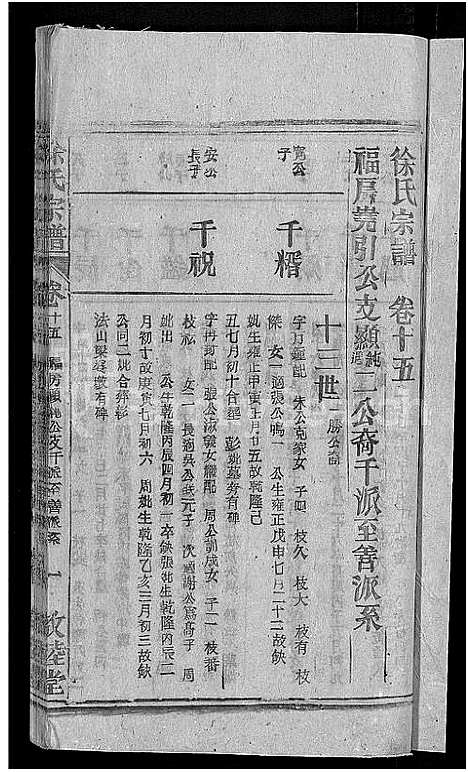 徐氏宗譜 卷十五
福房堯引公支顯純遇二公裔千派至善派系
十三世 勝公裔
寬公子
千楷
字 配 朱公克家女 子四 枝久 枝大 枝有 枝
傑 女一適張公鳴一 公生雍正戊申七月二十二故缺
妣生雍正甲寅正月廿五故乾隆己
丑七月初十合塟 彭妣墓旁有碑
安公長子
千祝
字 配 張公淑義女 配 周公 成女 子二 枝番
枝 女二 長適吳公 元子 次 謝公 高子 周
妣出 公生乾隆丙辰四月初一卒缺張妣生乾隆丙辰二
月初十故庚寅七月初六 周妣生乾隆乙亥三月初三故缺
公同二妣合塟彭
法山梁 有碑
徐氏宗譜
卷十五 福房顯純公支千派至善派系
一 敦睦堂